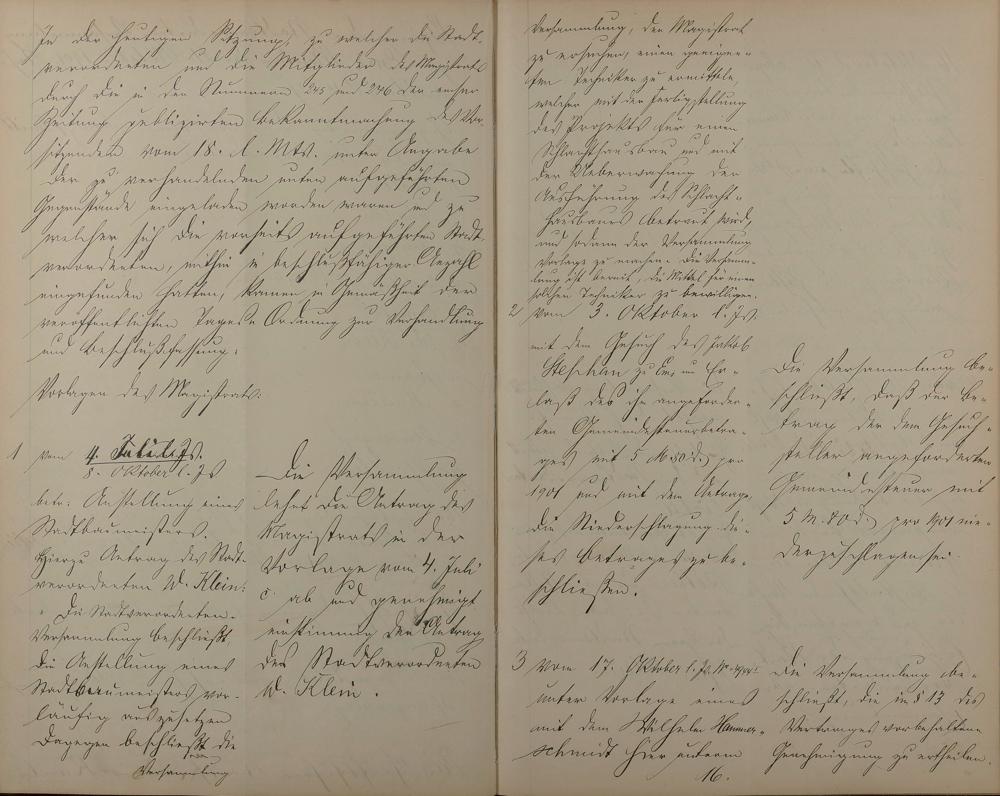 In der heutigen Sitzung, zu welcher die Stadt-
verordneten und die Mitglieder des Magistrats
durch die in den Nummern 245 und 246 der Emser
Zeitung publizirten Bekanntmachung des Vor-
sitzenden vom 18. l. Mts. unter Angabe
der zu verhandelnden unten aufgeführten
Gegenstände eingeladen worden waren und zu
welcher sich die vorseits aufgeführten Stadt-
verordneten, mithin in beschlußfähiger Anzahl
eingefunden hatten, kamen in Gemäßheit der
veröffentlichten Tages-Ordnung zur Verhandlung
und Beschlußfassung:
Vorlagen des Magistrats:
1 vom 4. Juli l. Js.
8. Oktober l. Js
betr: Anstellung eines
Stadtbaumeisters.
Hierzu Antrag des Stadt-
verordneten W. Klein:
„Die Stadtverordneten-
Versammlung beschließt,
die Anstellung eines
Stadtbaumeisters vor-
läufig auszusetzen
Dagegen beschließt die
Versammlung
Die Versammlung
lehnt den Antrag des
Magistrats in der
Vorlage vom 4. Juli
c. ab und genehmigt
einstimmig den Antrag
des Stadtverordneten
W. Klein.
Versammlung, den Magistrat
zu ersuchen, einen geeigne-
ten Techniker zu ermitteln,
welcher mit der Fertigstellung
des Projekts für einen
Schlachthausbau und mit
der Ueberwachung der
Ausführung des Schlacht-
hausbaues betraut wird,
und sodann der Versammlung
Vorlage zu machen. Die Versamm-
lung ist bereit, die Mittel für einen
solchen Techniker zu bewilligen.
2 vom 3. Oktober l. Js.
mit dem Gesuch des Jakob
Stephan zu Ems um Er-
laß des ihm angeforder-
ten Gemeindesteuerbetra-
ges mit 5 M 80 d. pro
1901 und mit dem Antrage,
die Niederschlagung die-
ses Betrages zu be-
schließen.
Die Versammlung be-
schließt, daß der Be-
trag der dem Gesuch-
steller angeforderten
Gemeindesteuer mit
5 M. 80 d. pro 1901 nie-
derzuschlagen sei.
3 vom 17. Oktober l. Js.
unter Vorlage eines
mit dem Wilhelm Hammer-
schmidt hier unterm
16.
Die Versammlung be-
schließt, die im § 13 des
Vertrages vorbehaltene
Genehmigung zu ertheilen.